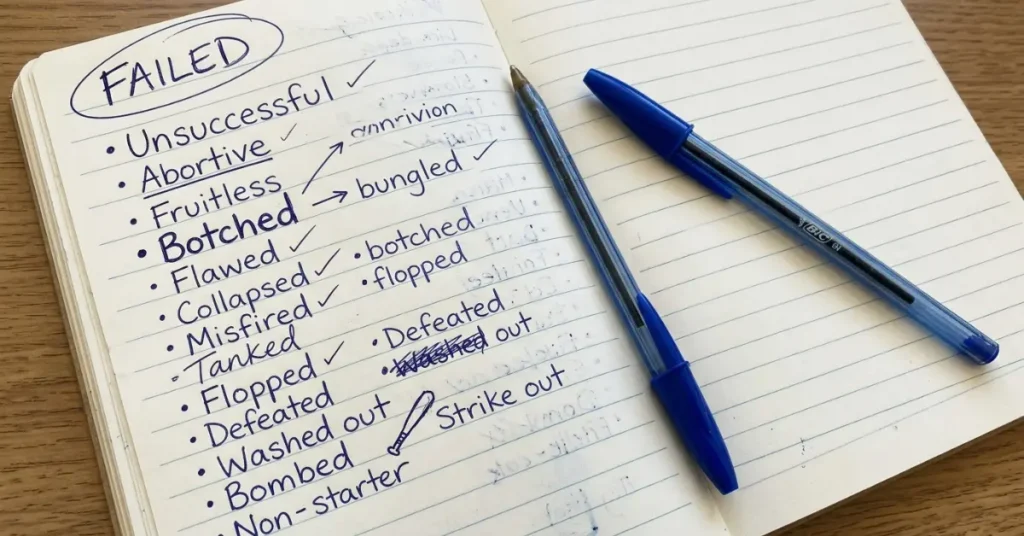 FAILED
• Unsuccessful ✓
• Abortive ✓
• Fruitless
• Botched → bungled ✓
• Flawed ✓ • botched
• Collapsed ✓ • flopped
• Misfired ✓
Tanked • Defeated
• Flopped ✓ • Washed out
• Defeated
• Washed out Strike out
• Bombed
• Non-starter
BIC